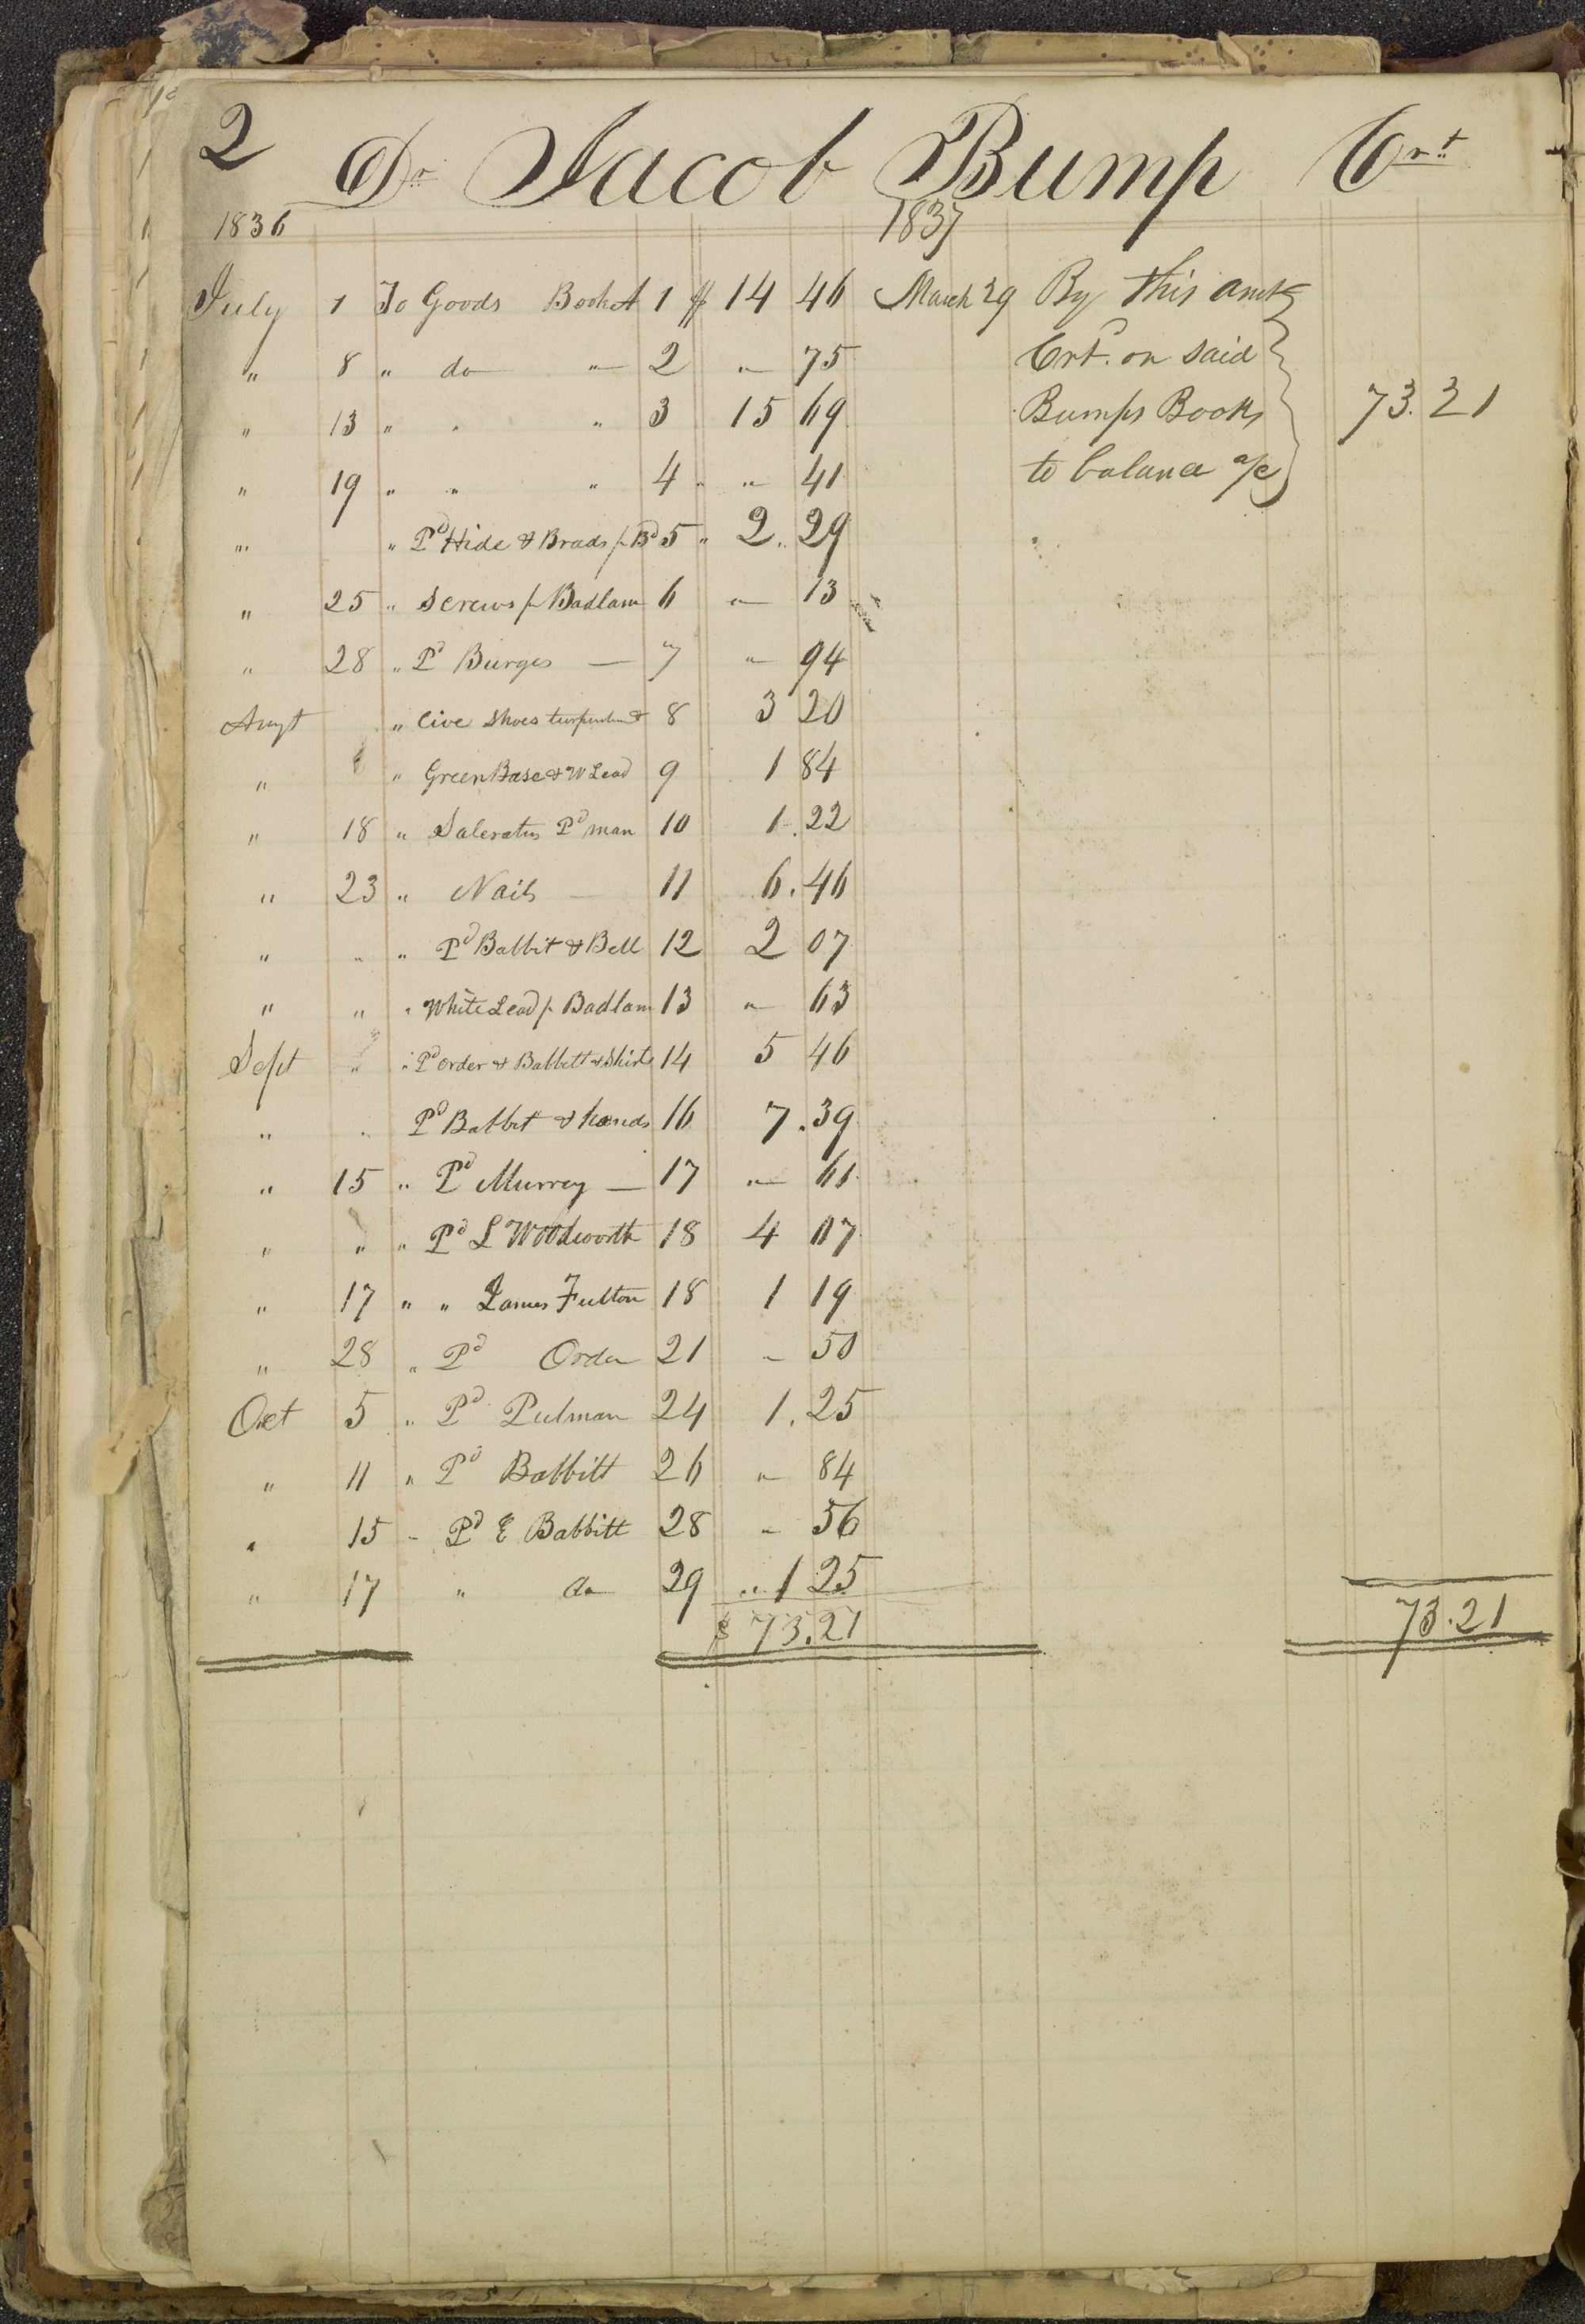 2 Dr Jacob Bump Crt
1836
July 1 To Goods Book A 1 $ 14 46
" 8 " do " 2 " 75
" 13 " " " 3 15 69
" 19 " " " 4 " " 41
" " Pd Hide & Brads pr Bd 5 " 2.. 29
" 25 " Screws pr Badlam 6 " 13
" 28 " Pd Burges — 7 " 94
Augt " Cive Shoes turpentine & 8 3 20
" " Green Base & W Lead 9 1 84
" 18 " Saleratus Pd man 10 1. 22
" 23 " Nails — 11 6. 46
" " " Pd Babbit & Bell 12 2 07
" " " White Lead pr Badlam 13 " 63
Sept " " Pd order & Babbett & Shirts 14 5 46
" " Pd Babbit & hands 16 7. 39
" 15 " Pd Murray — 17 " 61
" " " Pd L Woodworth 18 4 07
" 17 " " James Fulton 18 1 19
" 28 " Pd Order 21 " 50
Oct 5 " Pd Pulman 24 1. 25
" 11 " Pd Babbitt 26 " 84
" 15 " Pd E Babbitt 28 " 56
" 17 " do 29 " 1 25
$ 73.21
1837
March 29 By this amt
Crt. on said
Bumps Books 73.21
to balance a/c
73.21